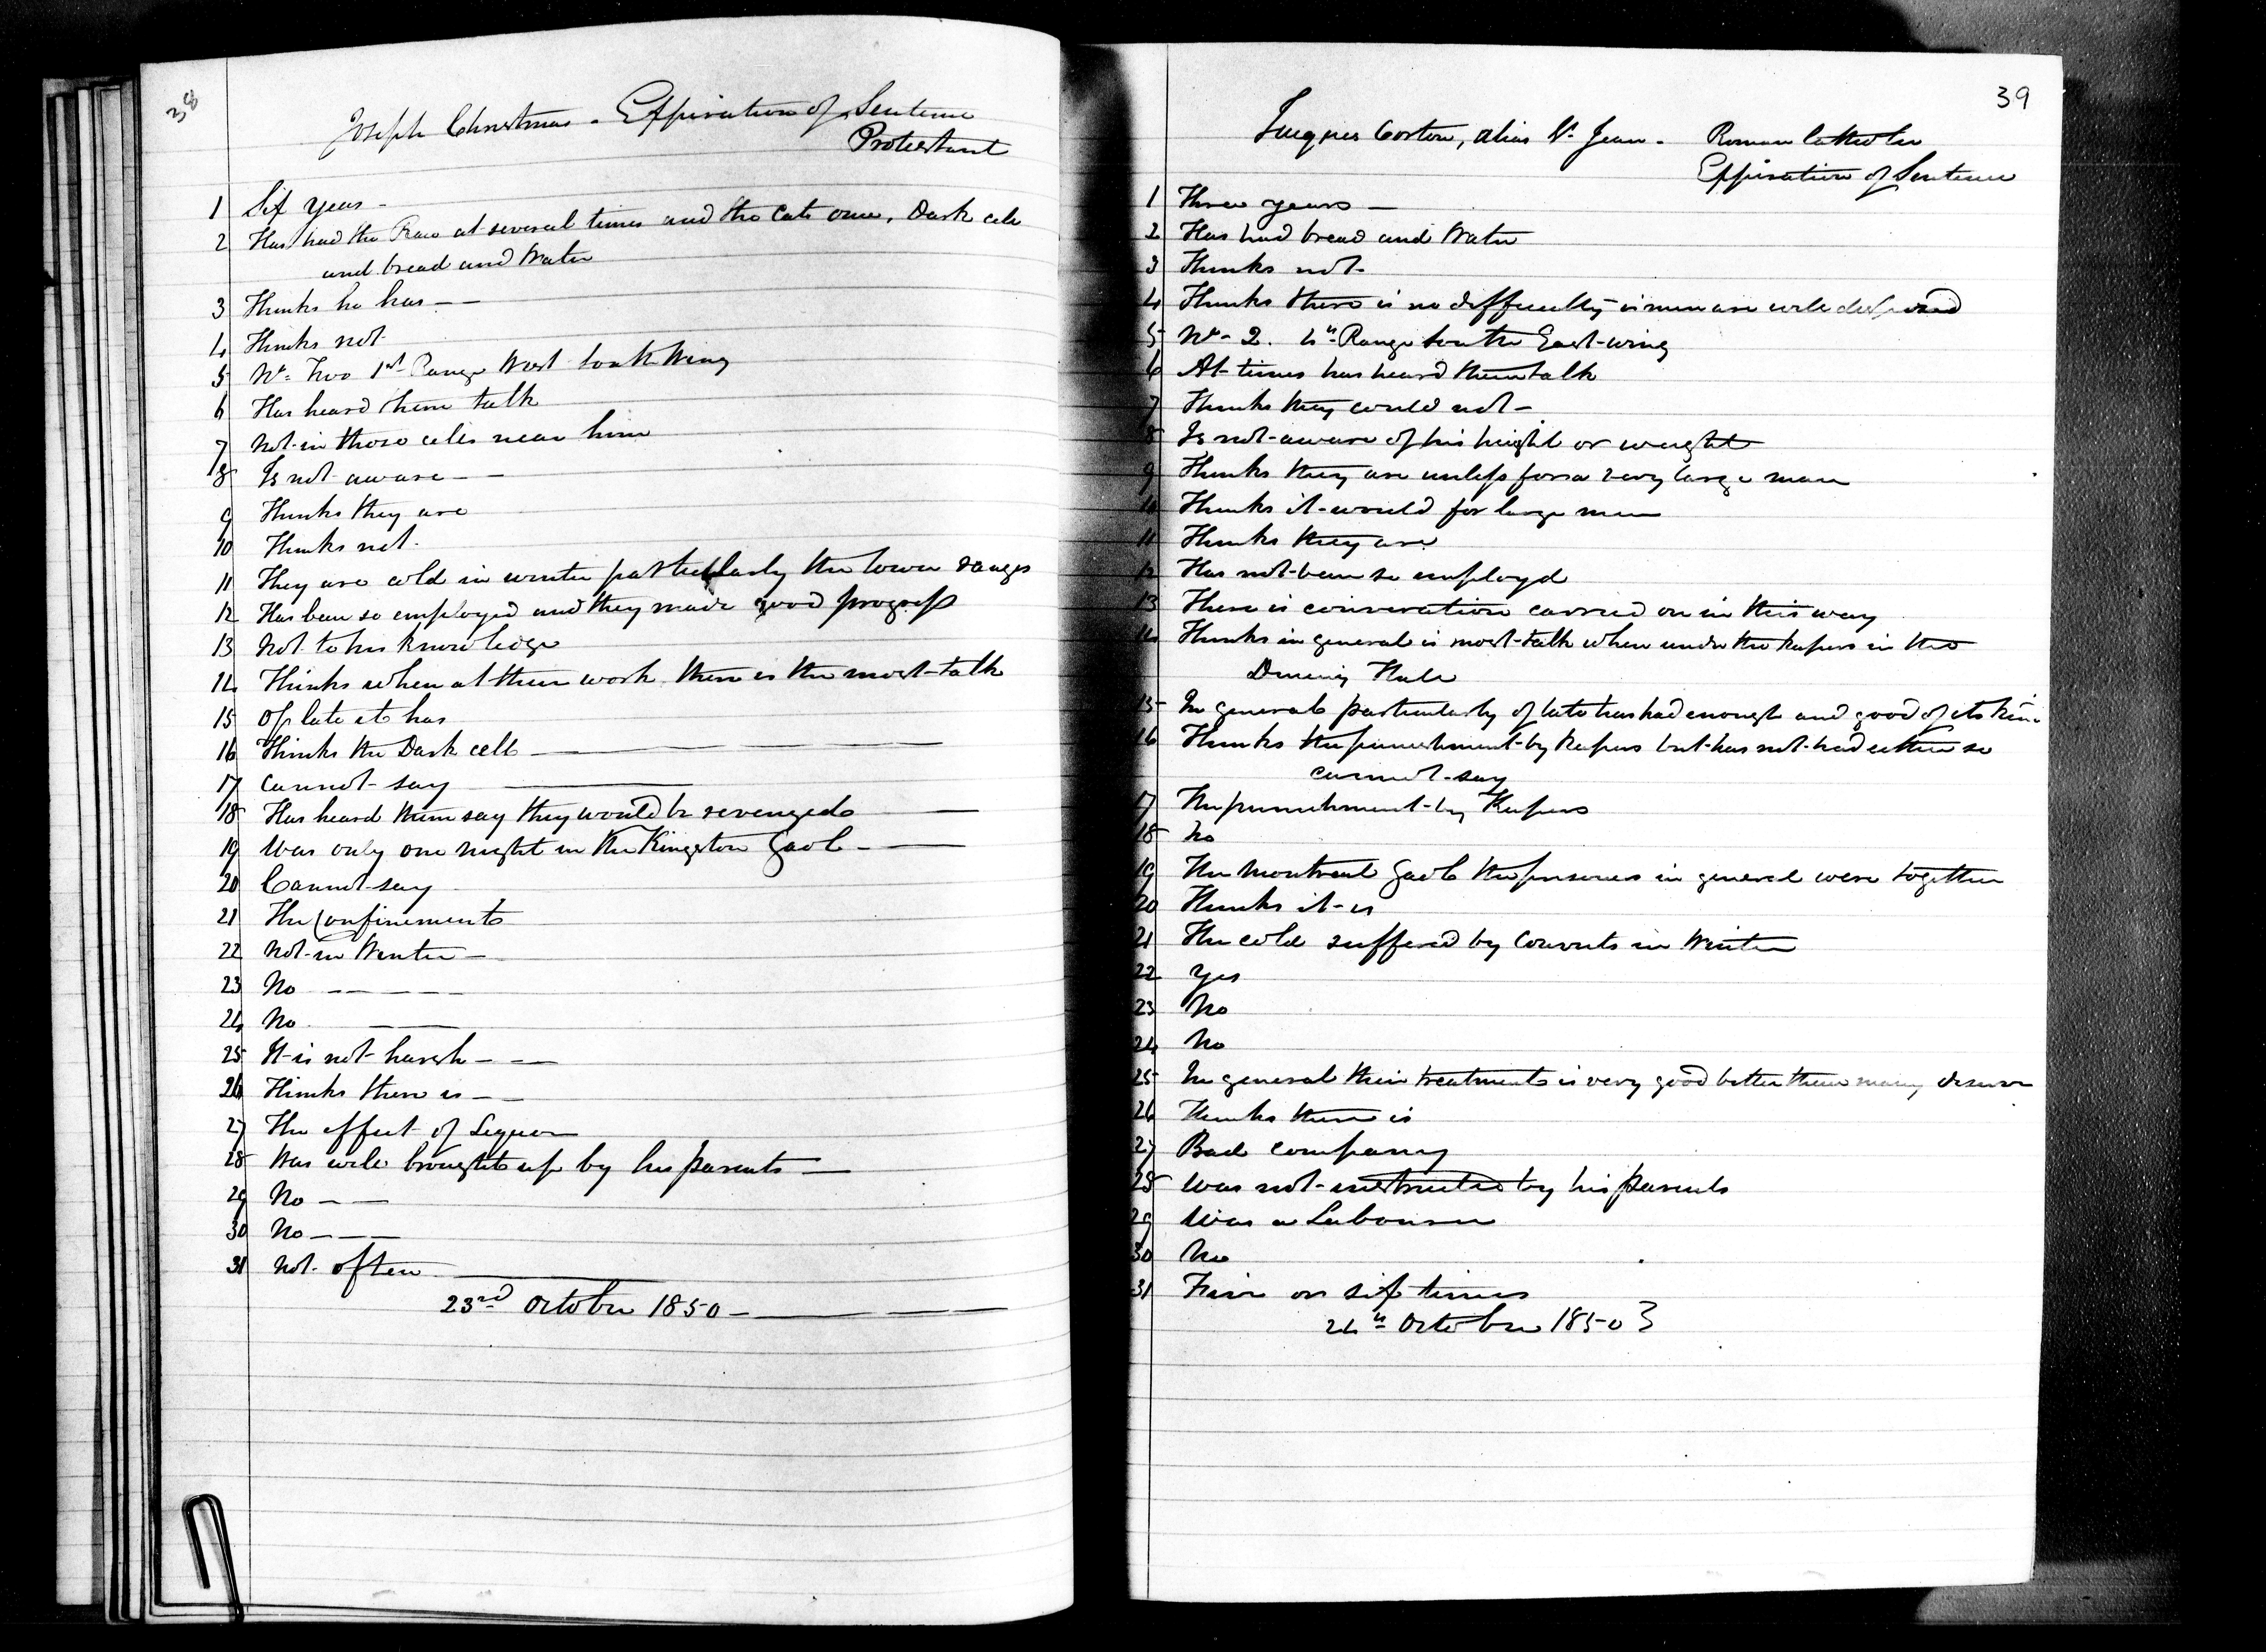 38
Joseph Christmas - Expiration of Sentence
Protestant
1 Six years -
2 Has had the Raw at several times and the Cats once. Dark cell
and bread and Water
3 Thinks he has - -
4 Thinks not
5 No. Two 1st Range West South Wing
6 Has heard them talk
7 Not in those cells near him
8 Is not aware - -
9 Thinks they are
10 Thinks not.
11 They are cold in winter particularly the lower ranges
12 Has been so employed and they made good progress
13 Not to his knowledge
14 Thinks when at their work there is the most talk
15 Of late it has
16 Thinks the Dark cell
17 Cannot say
18 Has heard them say they would be revenged
19 Was only one night in the Kingston Gaol -
20 Cannot say
21 The Confinement
22 Not in Winter -
23 No - - - - -
24 No.
25 It is not harsh - -
26 Thinks there is -
27 The effect of Liquor
28 Was well brought up by his parents -
29 No - -
30 No - - -
31 Not often
23rd October 1850 -
39
Jacques Corton, alias St. Jean. Roman Catholic
Expiration of Sentence
1 Three years -
2 Has had bread and Water
3 Thinks not.
4 Thinks there is no difficulty if men are well disposed
5 No. 2. 4th Range South East wing
6 At times has heard them talk
7 Thinks they could not -
8 Is not aware of his height or weight
9 Thinks they are unless for a very large man
10 Thinks it would for large men
11 Thinks they are
12 Has not been so employd
13 There is conversation carried on in this way
14 Thinks in general is most talk when under the Keepers in the
Dining Hall
15 In general particularly of late has had enough and good of its kind
16 Thinks the punishment by Keepers but has not had either so
cannot say
17 The punishment by Keepers
18 No
19 The Montreal Gaol the prisoners in general were together
20 Thinks it is
21 The cold suffered by Convicts in Winter
22 Yes
23 No
24 No
25 In general their treatment is very good better than many deserve
26 Thinks there is
27 Bad company
28 Was not instructed by his parents
29 Was a Labourer
30 No
31 Five or six times
24th October 1850